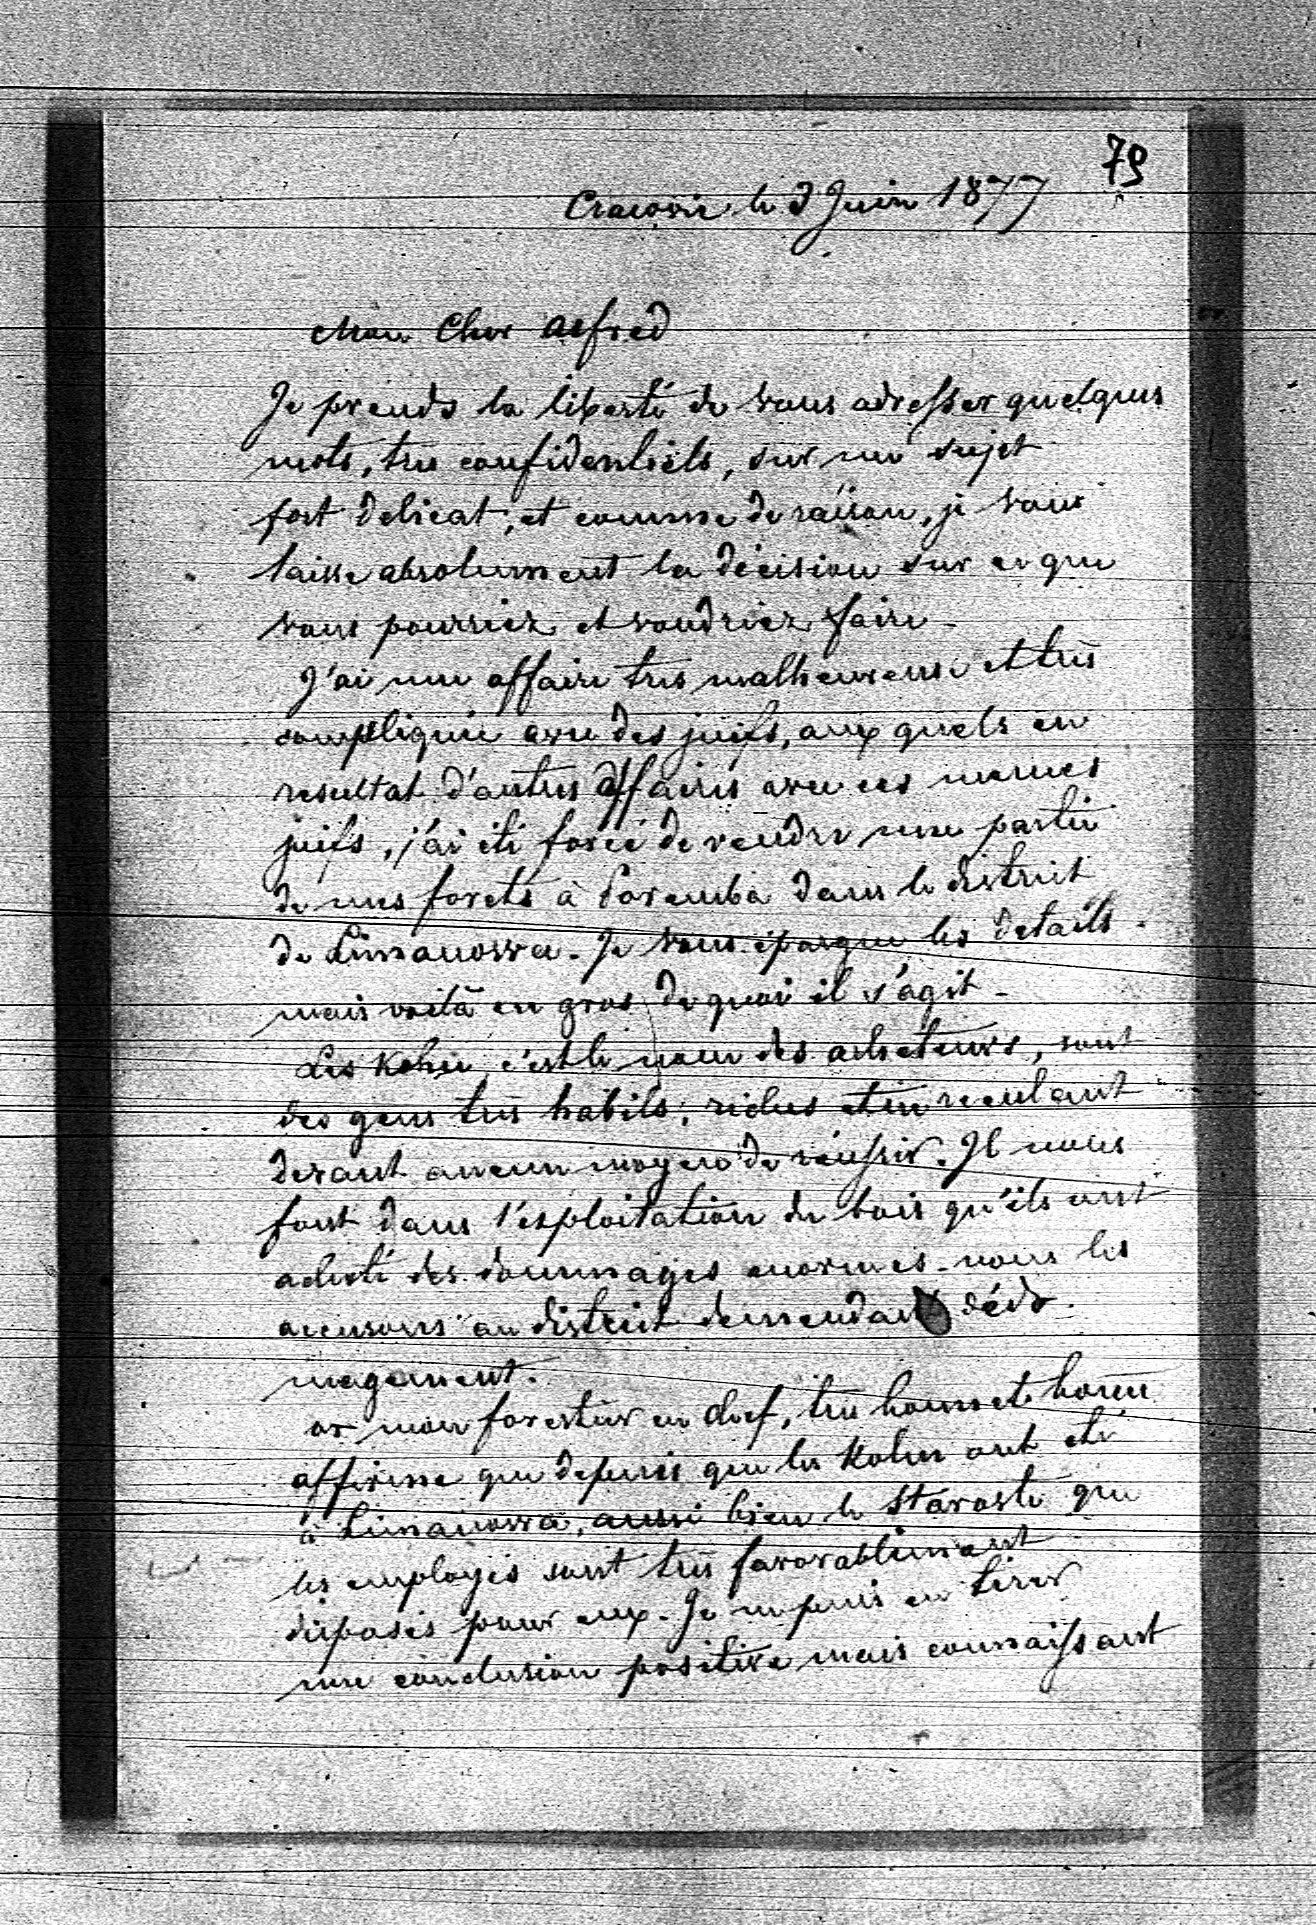 79
Cracovie le 3 Juin 1877
Mon Cher Alfred
Je prends la liberté de vous adresser quelques
mots, tres confidentiels, sur un sujet
fort delicat, et comme de raison, je vous
laisse absolument la décision sur ce que
vous pourriez et voudriez faire -
J'ai une affaire tres malheureuse et tres
compliquée avec des juifs, aux quels en
resultat d'autres affaires avec ces memes
juifs, j'ai été forcé de vendre une partie
de mes forets à Poremba dans le district
de Limanowa. Je vous epargne les details.
mais voilà en gros de quoi il s'agit -
Les Kohn, c'est le nom des acheteurs, sont
des gens tres habils, riches et ne reculant
devant aucun moyen de réussir. Il nous
font dans l'exploitation du bois qu'ils ont
acheté des dommages enormes - nous les
accusons au district demendant dédo-
magement.
or mon forestier en chef, tres honnete homme
affirme que depuis que les Kohn ont été
à Limanowa, aussi bien le Staroste que
les employés sont tres favorablement
disposés pour eux. Je ne puis en tirer
une conclusion positive mais connaissant